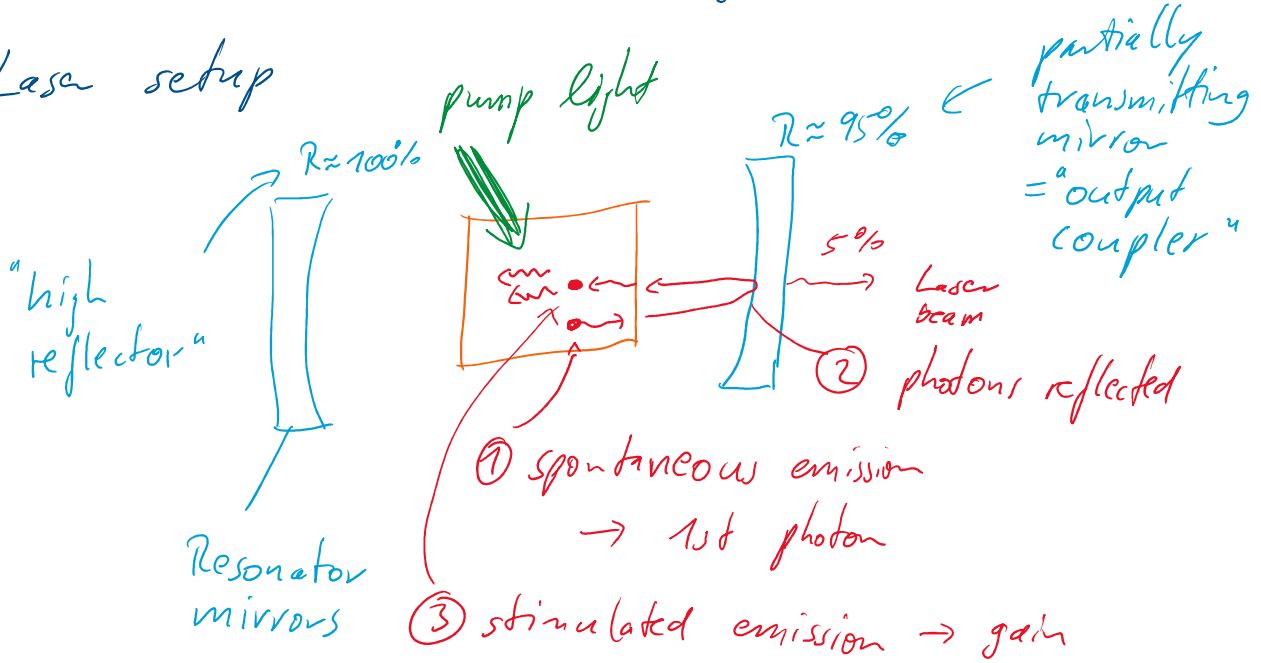 Laser setup
pump light
R ≈ 100%
R ≈ 95%
partially
transmitting
mirror
= "output
coupler"
"high
reflector"
5%
Laser
beam
② photons reflected
① spontaneous emission
→ 1st photon
Resonator
mirrors
③ stimulated emission → gain